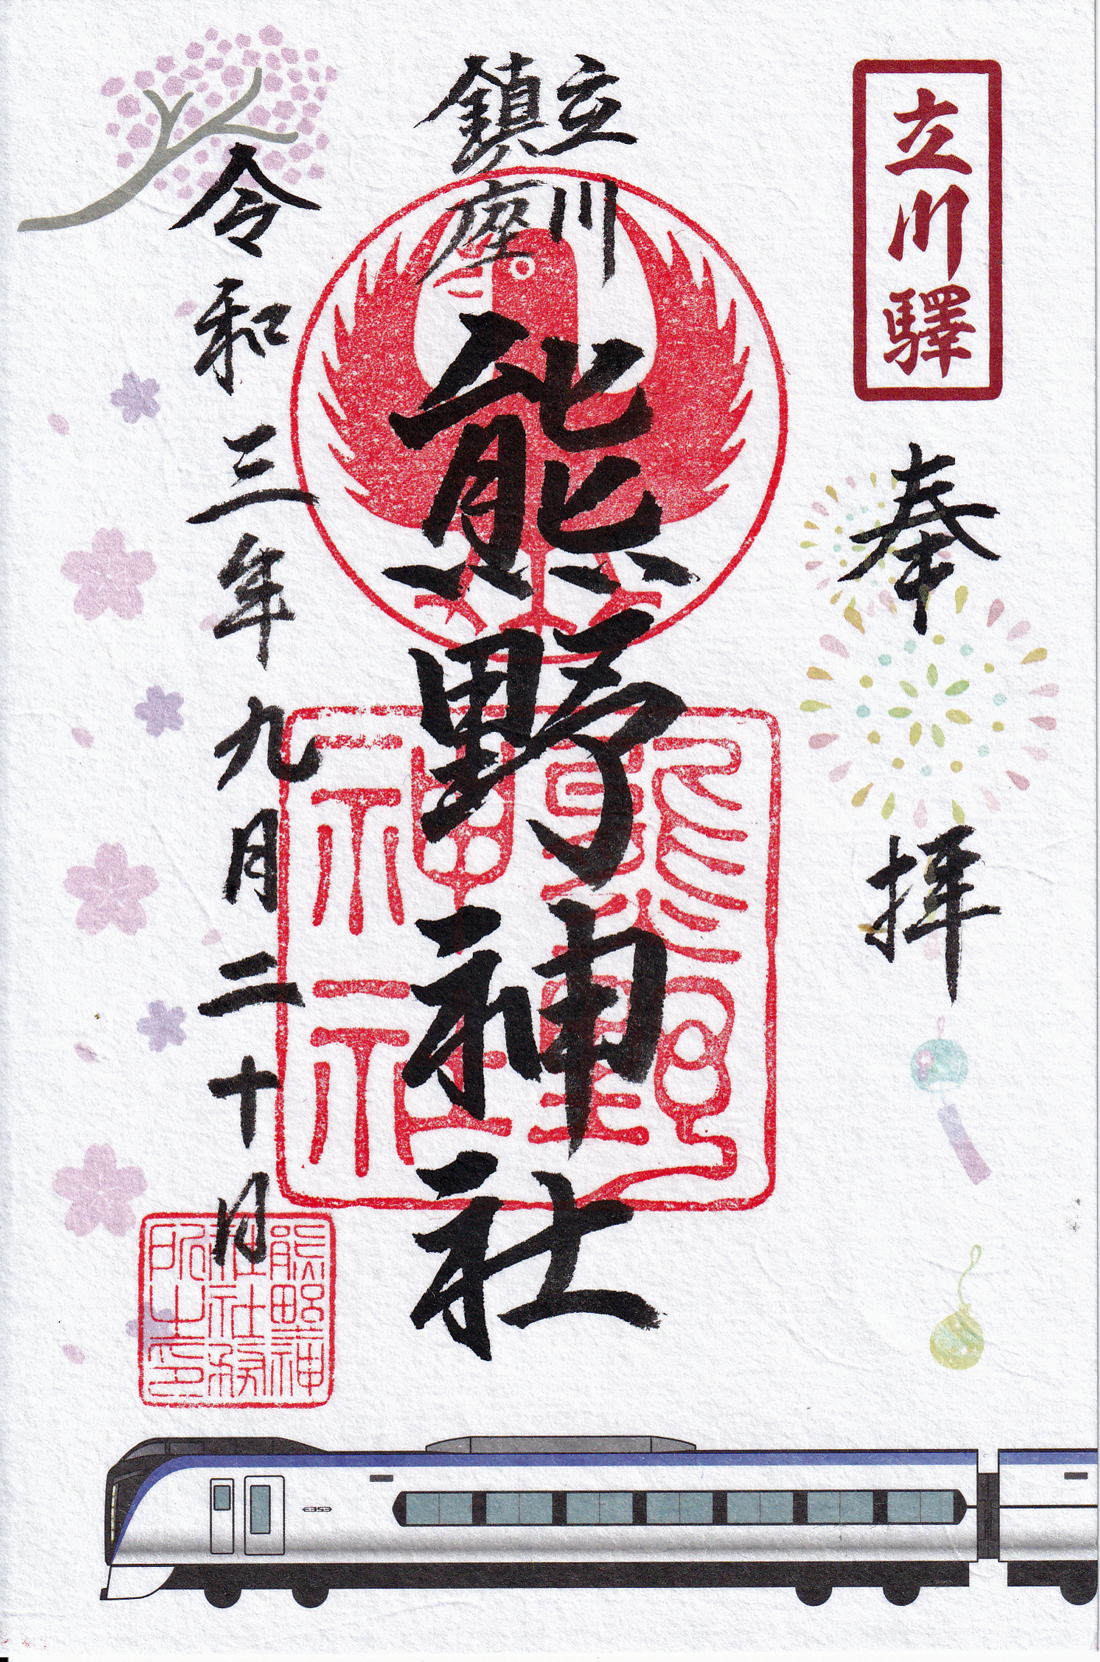 立川驛
奉拝
立川
鎮座
熊野神社
熊野
神社
令和三年九月二十月
熊野神
社社務
所之印
E353